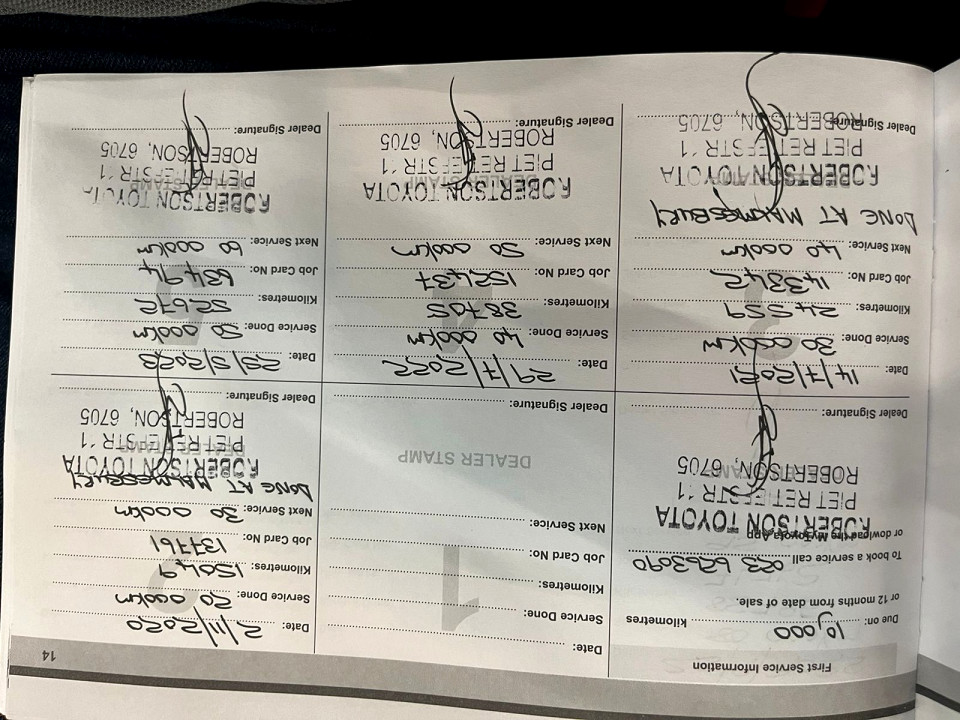 14
First Service Information
Due: on: 10,000 kilometres
or 12 months from date of sale.
To book a service call 023 6263090
or download the My Toyota App
ROBERTSON TOYOTA
PIET RETIEFSTR 11
ROBERTSON, 6705
Dealer Signature:
1
Date:
Service Done:
Kilometres:
Job Card No:
Next Service:
DEALER STAMP
Dealer Signature:
Date: 2/11/2020
Service Done: 20 000km
Kilometres: 15049
Job Card No: 137761
Next Service: 30 000km
DONE AT MALMESBURY
ROBERTSON TOYOTA
PIET RETIEFSTR 11
ROBERTSON, 6705
Dealer Signature:
3
Date: 14/7/2021
Service Done: 30 000km
Kilometres: 24559
Job Card No: 143342
Next Service: 40 000km
DONE AT MALMESBURY
ROBERTSON TOYOTA
PIET RETIEFSTR 11
ROBERTSON, 6705
Dealer Signature:
Date: 29/7/2022
Service Done: 40 000km
Kilometres: 38705
Job Card No: 152437
Next Service: 50 000km
DEALER STAMP
ROBERTSON TOYOTA
PIET RETIEFSTR 11
ROBERTSON, 6705
Dealer Signature:
Date: 23/5/2023
Service Done: 50 000km
Kilometres: 52672
Job Card No: 63494
Next Service: 60 000km
ROBERTSON TOYOTA
PIET RETIEFSTR 11
ROBERTSON, 6705
Dealer Signature: